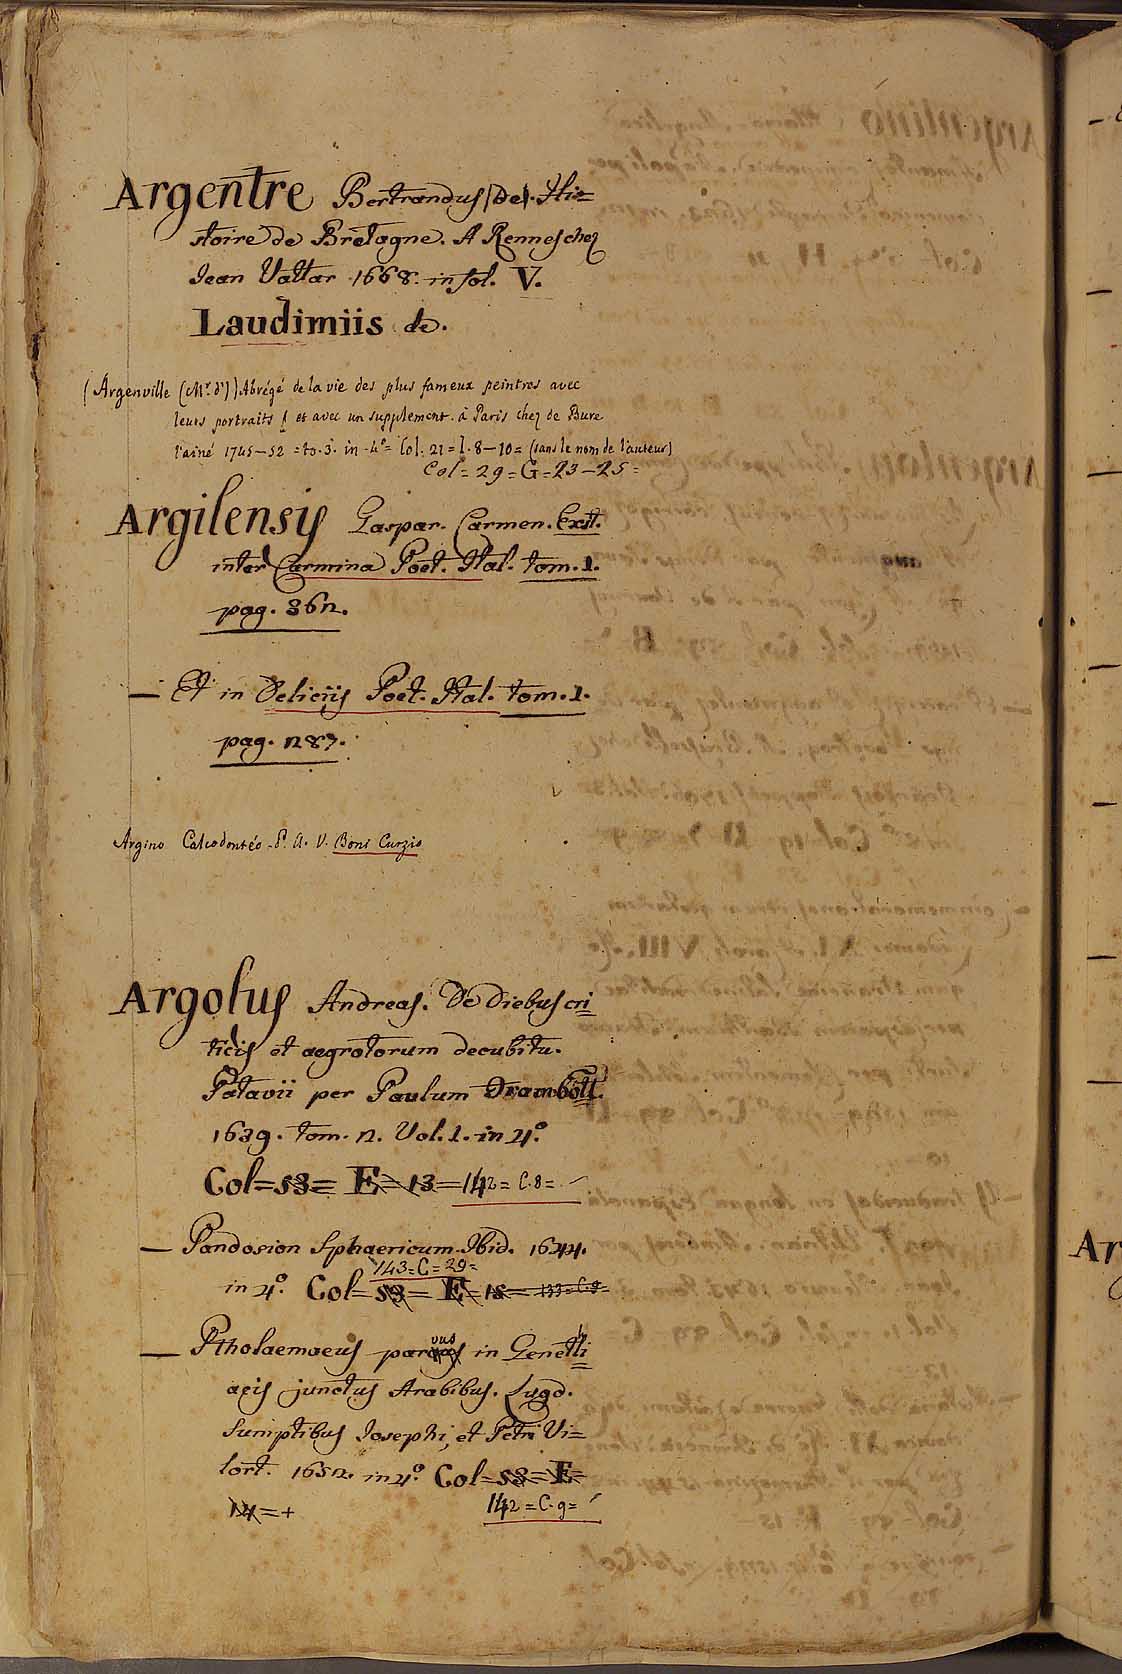 Argentre Bertrandus (de). Hi=
stoire de Bretagne. A Rennes chez
Jean Vattar 1668. in fol. V.
Laudimiis de.
(Argenville (Mr. d')) Abrégé de la vie des plus fameux peintres avec
leurs portraits et avec un supplement. à Paris chez de Bure
l'ainé 1745-52 = to. 3. in 4º = Col. 21 = I. 8-10 = (sans le nom de l'auteur)
Col = 29 = G = 23-25 =
Argilensis Gaspar. Carmen. Exst.
inter Carmina Poet. Ital. tom. 1.
pag. 362.
— Et in Deliciis Poet. Ital. tom. 1.
pag. 287.
Argino Calcodontéo - P. A. V. Boni Curzio
Argolus Andreas. De diebus cri=
ticis et aegrotorum decubitu.
Patavii per Paulum Frambott.
1639. tom. 2. Vol. 1. in 4º.
Col = 53 = E = 13 = 142 = C. 8 =
— Pandosion Sphaericum. Ibid. 1644.
143 = C = 29 =
in 4º. Col = 53 = E = 15 = 133 = C. 9 =
— Ptholaemaeus parvus in Genethli=
acis junctus Arabibus. Lugd.
Sumptibus Josephi, et Petri Vi=
lort. 1652. in 4º. Col = 53 = E =
14 = +
142 = C. 9 =
Ar